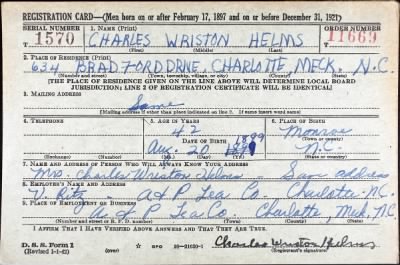 REGISTRATION CARD—(Men born on or after February 17, 1897 and on or before December 31, 1921)
SERIAL NUMBER 1. NAME (Print) ORDER NUMBER
T 1570 CHARLES WRISTON HELMS 11669
(First) (Middle) (Last)
2. PLACE OF RESIDENCE (Print)
634 BRADFORD DRIVE, CHARLOTTE MECK. N.C.
(Number and street) (Town, township, village, or city) (County) (State)
[THE PLACE OF RESIDENCE GIVEN ON THE LINE ABOVE WILL DETERMINE LOCAL BOARD
JURISDICTION; LINE 2 OF REGISTRATION CERTIFICATE WILL BE IDENTICAL]
3. MAILING ADDRESS
Same
[Mailing address if other than place indicated on line 2. If same insert word same]
4. TELEPHONE 5. AGE IN YEARS 6. PLACE OF BIRTH
42 Monroe
DATE OF BIRTH 1899 (Town or county)
Aug. 20 N.C.
(Exchange) (Number) (Mo.) (Day) (Yr.) (State or country)
7. NAME AND ADDRESS OF PERSON WHO WILL ALWAYS KNOW YOUR ADDRESS
Mrs. Charles Wriston Helms — Same address
8. EMPLOYER'S NAME AND ADDRESS
V. Ritz A & P Tea Co. Charlotte N.C.
9. PLACE OF EMPLOYMENT OR BUSINESS
A & P Tea Co. Charlotte, Meck. N.C.
(Number and street or R. F. D. number) (Town) (County) (State)
I AFFIRM THAT I HAVE VERIFIED ABOVE ANSWERS AND THAT THEY ARE TRUE.
D. S. S. Form 1
(Revised 1-1-42) (over) GPO 16—21630-1 Charles Wriston Helms
(Registrant's signature)